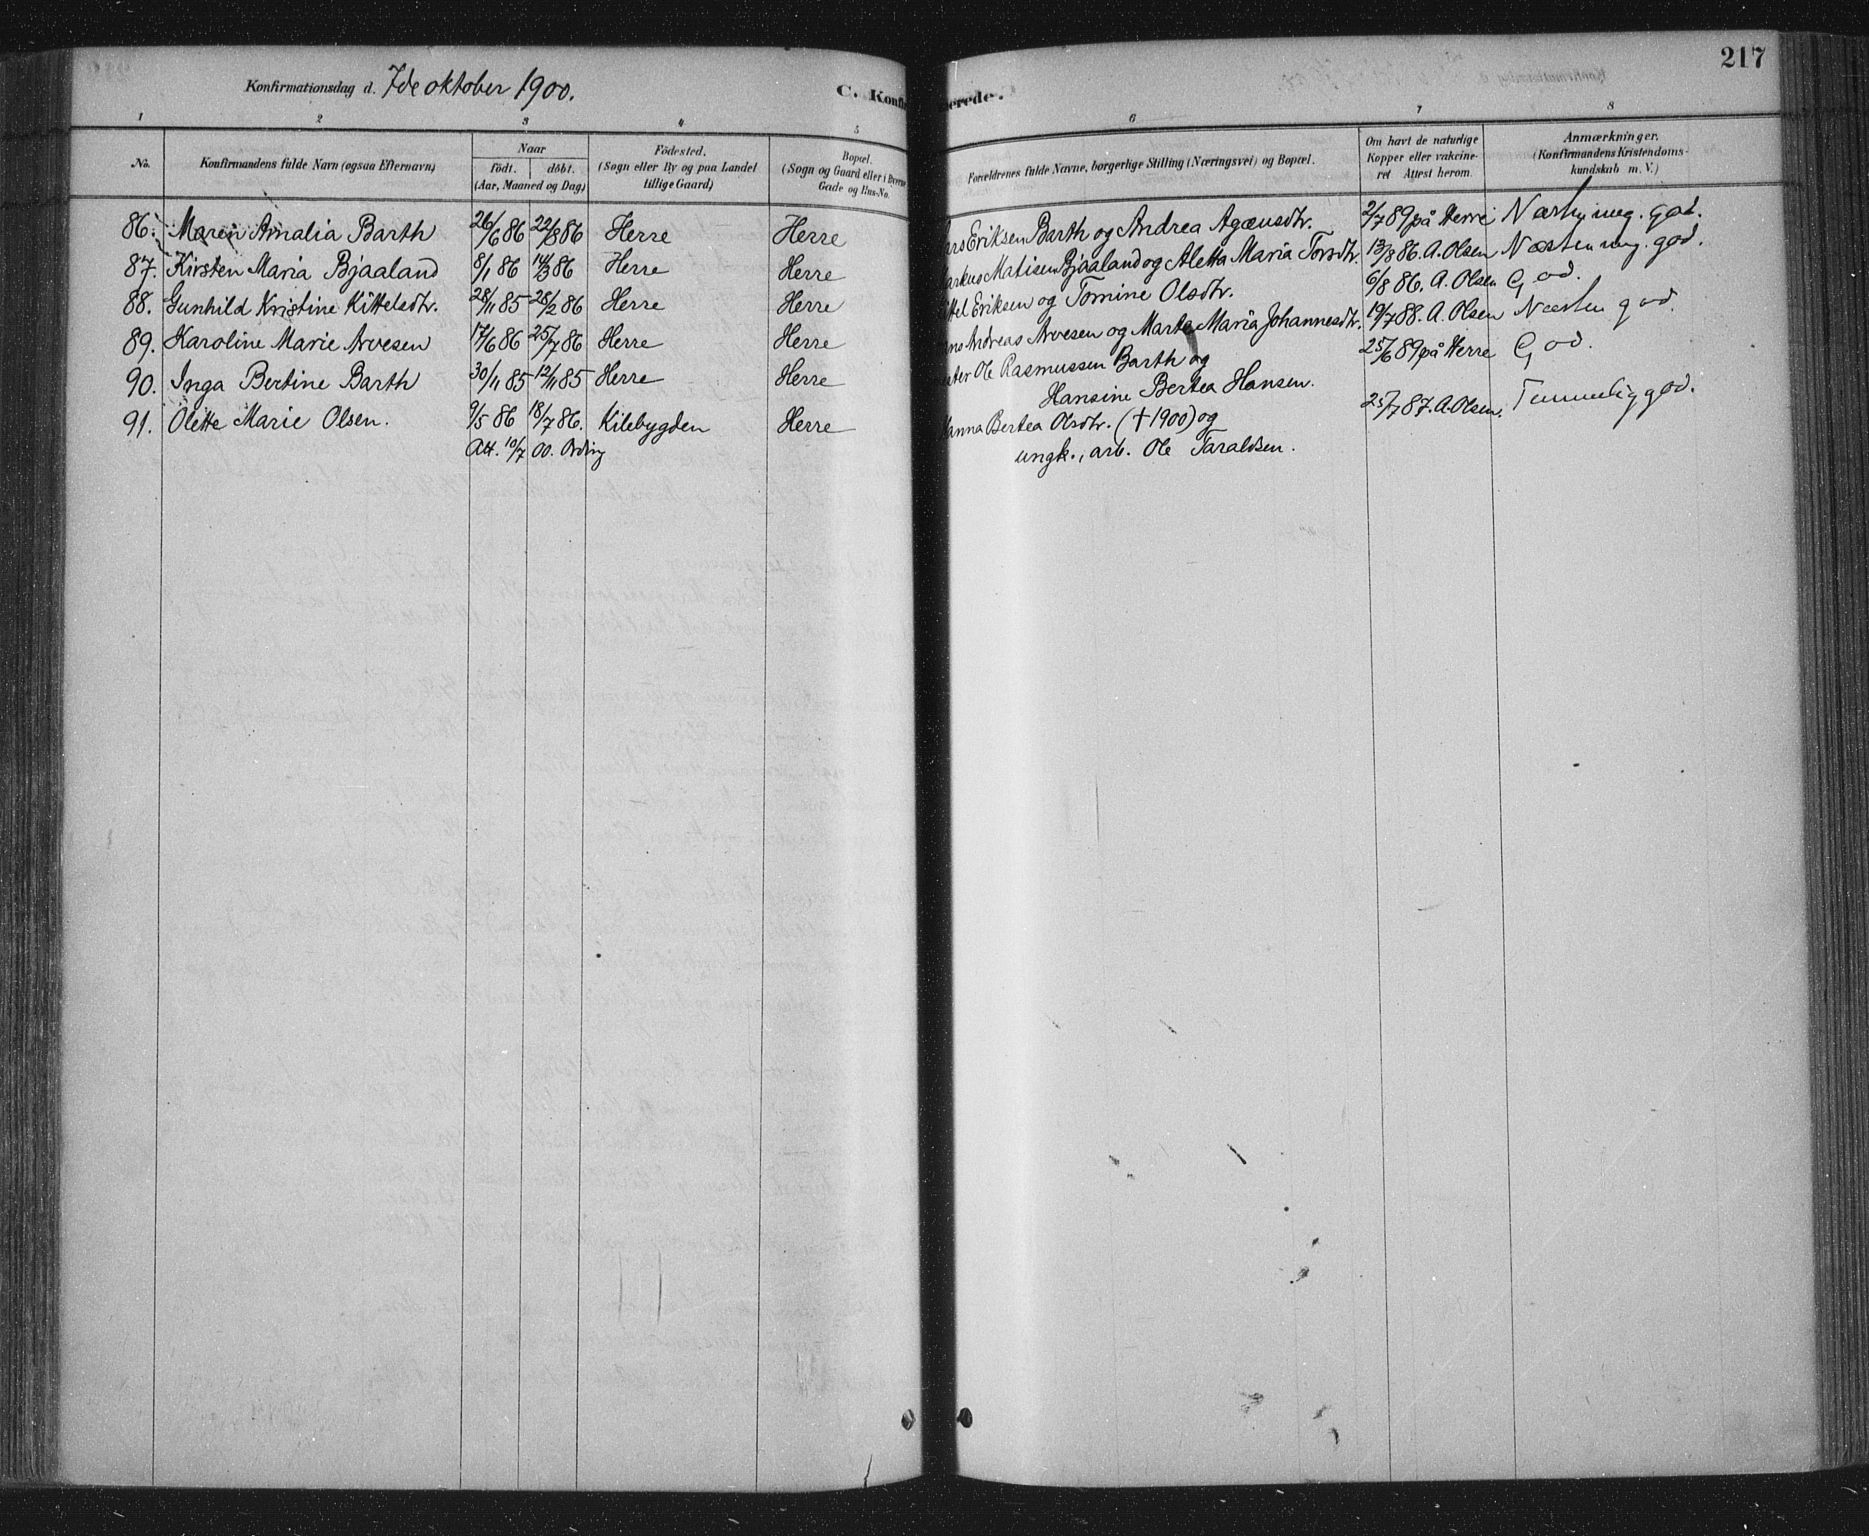 217
Konfirmationsdag d. 7de oktober 1900.
C. Konfir
erede.
1 2 3 4 5 6 7 8
No.
Konfirmandens fulde Navn (ogsaa Efternavn)
Naar
födt. döbt.
(Aar, Maaned og Dag)
Födested.
(Sogn eller By og paa Landet
tillige Gaard)
Bopæl.
(Sogn og Gaard eller i Byerne
Gade og Hus-No.
Forældrenes fulde Navne, borgerlige Stilling (Næringsvei) og Bopæl.
Om havt de naturlige
Kopper eller vakcine-
ret Attest herom.
Anmærkninger.
(Konfirmandens Kristendoms-
kundskab m. V.)
86. Maren Amalia Barth 26/6 86 22/8 86 Herre Herre ars Eriksen Barth og Andrea Agænsdtr. 2/7 89 på Herre Næsten meg. god.
87. Kirsten Maria Bjaaland 8/1 86 14/3 86 Herre Herre arkus Matisen Bjaaland og Aletta Maria Torsdtr. 13/8 86. A. Olsen Næsten mg. god.
88. Gunhild Kristine Kittelsdtr. 28/11 85 28/2 86 Herre Herre ittel Eriksen og Tomine Olsdtr. 6/8 86. A. Olsen God.
89. Karoline Marie Arvesen 17/6 86 25/7 86 Herre Herre ans Andreas Arvesen og Marte Maria Johannesdtr. 19/7 88. A. Olsen Næsten god.
90. Inga Bertine Barth 30/11 85 12/11 85 Herre Herre Ole Rasmussen Barth og 25/6 89 på Herre God.
Hansine Bertea Hansen.
91. Olette Marie Olsen. 9/5 86 18/7 86. Kilebygden Herre anna Bertea Olsdtr. († 1900) og 25/7 87. A. Olsen. Temmelig god.
Att. 10/7 00. Ording
ungk., arb. Ole Taraldsen.